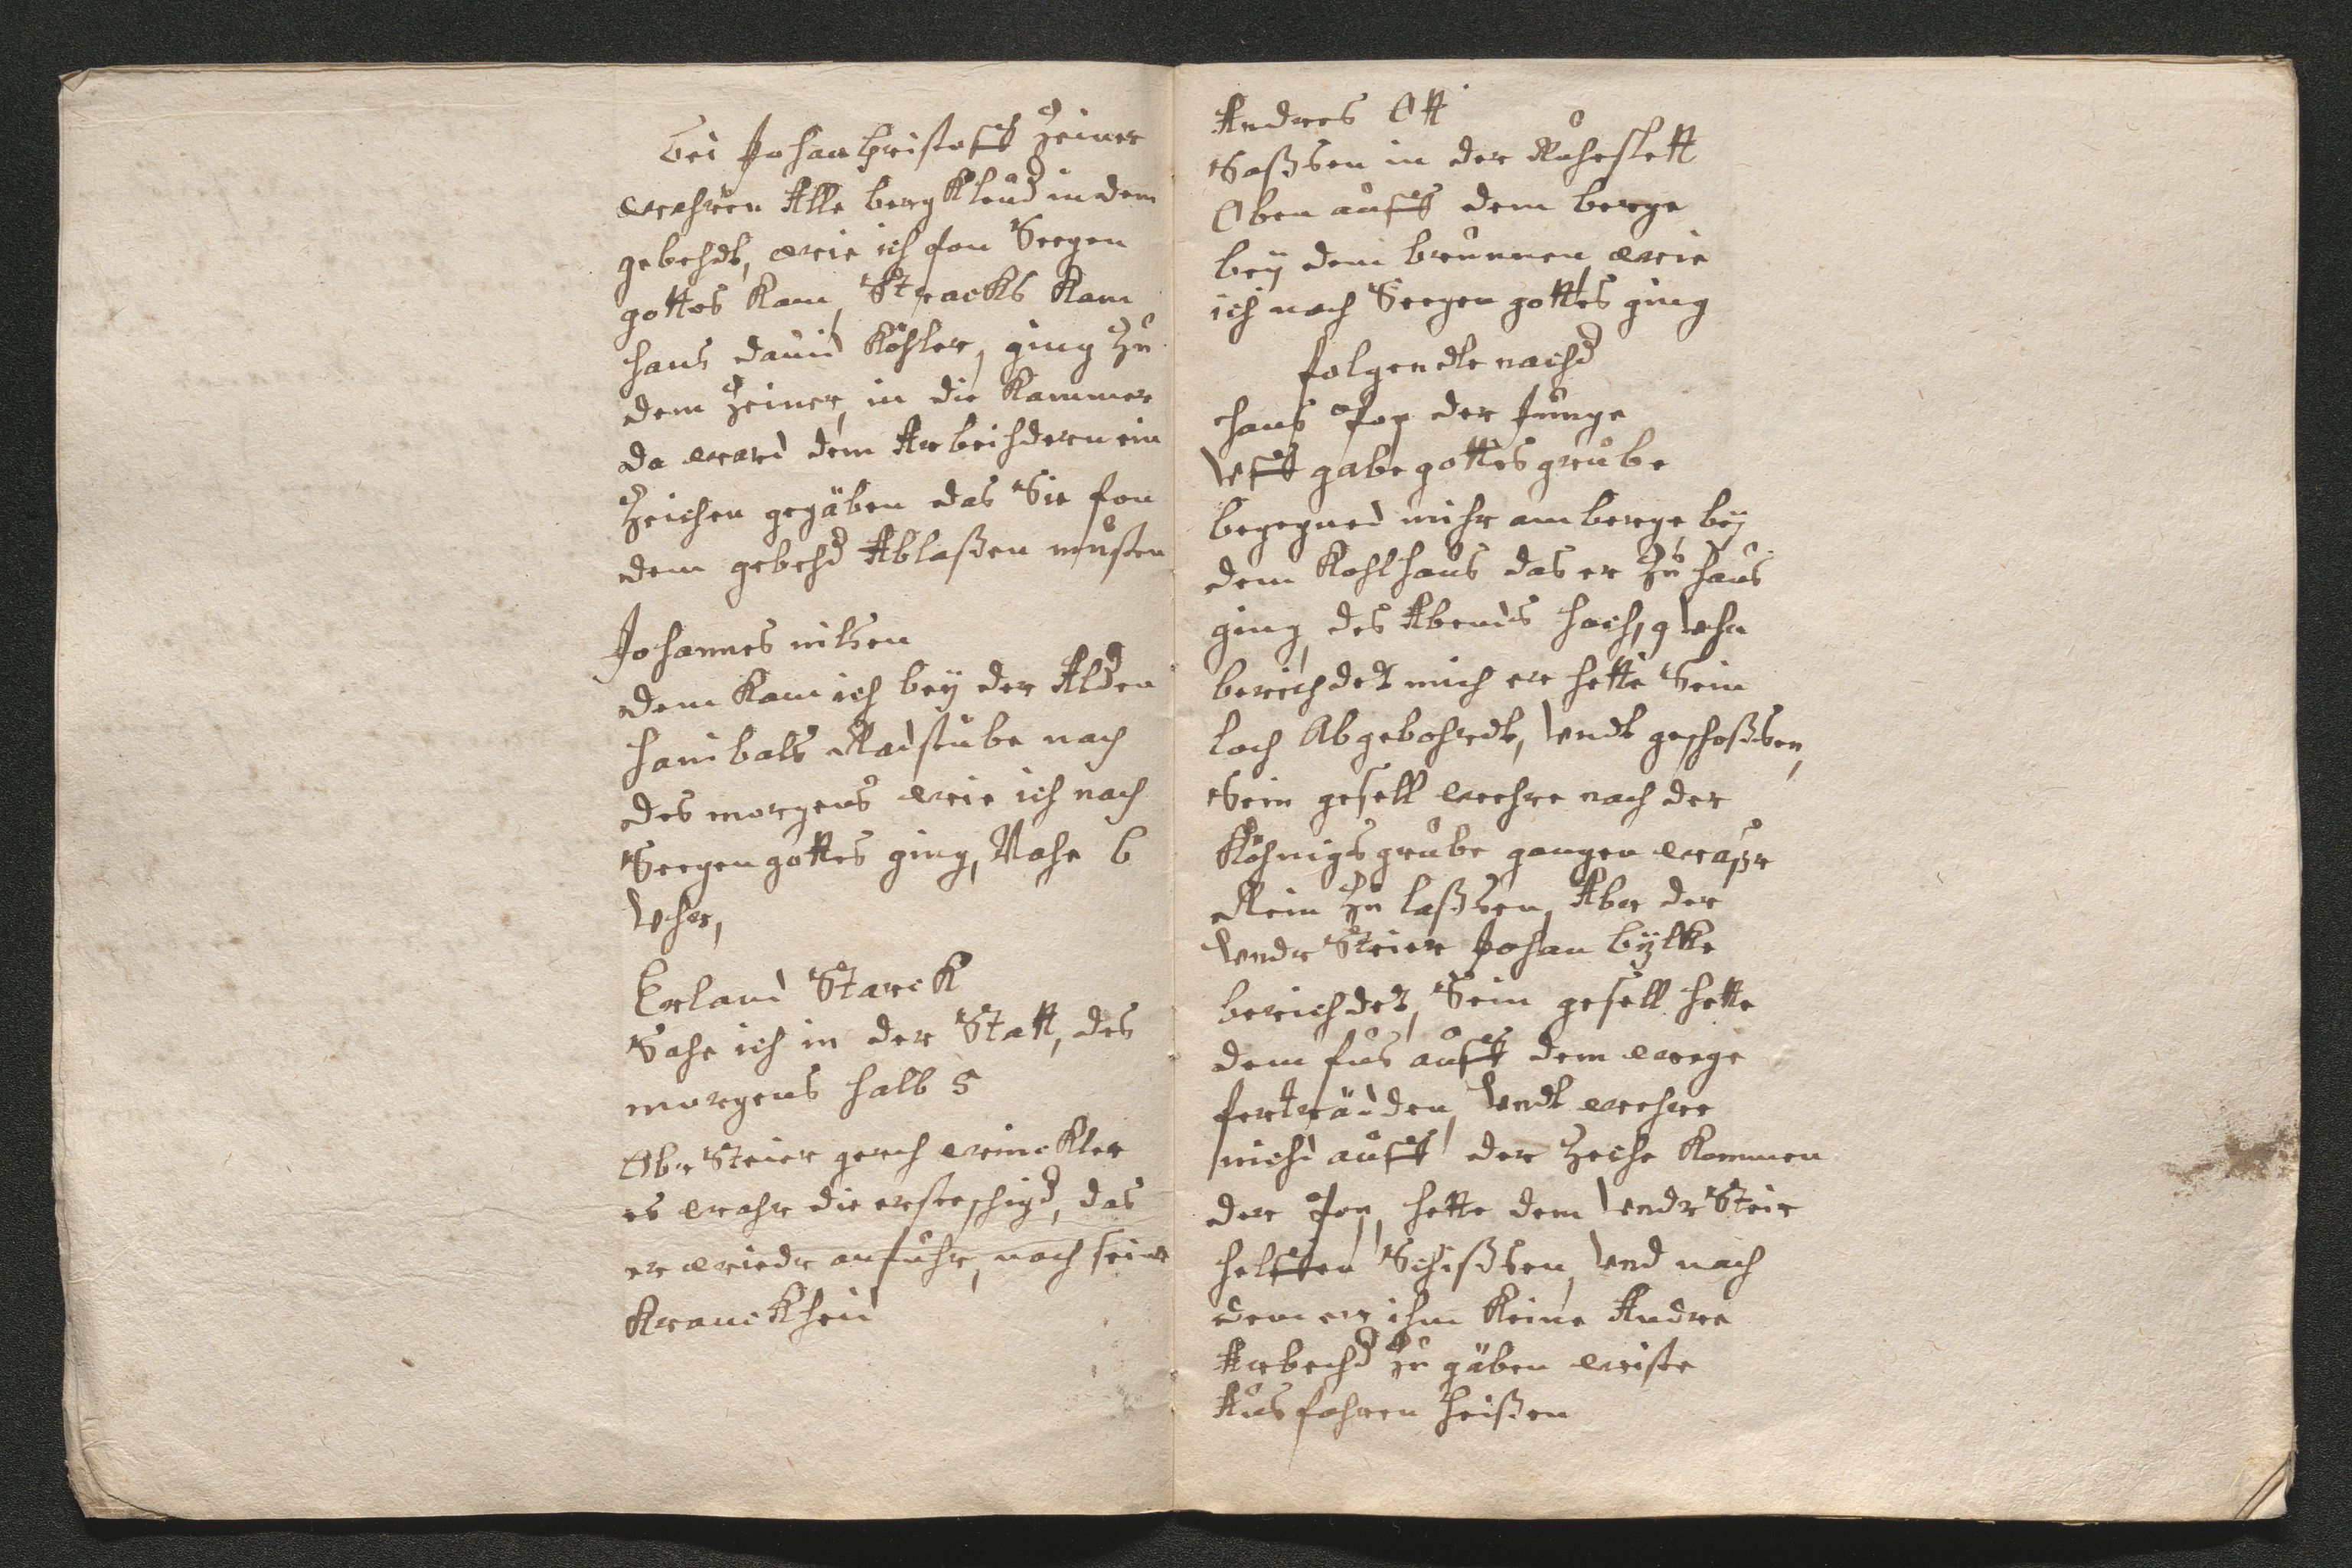 bei Johan Christoff Zeiner
wahren Alle bergkleud in dem
gebehdt, wie ich fon Seegen
gottes kam, Stracks kam
hans david Köhler, ging zu
dem Zeiner, in die Kammer
da ward dem Arbeihdern ein
Zeichen gegäben das Sie fon
dem gebehd Ablaßen musten
Johannes nilsen
dem kam ich bey der Alden
hanibals Radstube nach
des morgens wie ich nach
Seegen gottes ging, Nahe 6
Vhr,
Erland Starck
Sahe ich in der Statt, des
morgens halb 5
Obr Steier gerch winckler
es wahr die erste schigd, das
er wiedr anfuhr, nach seine
kranckheid
Andres Ott
Saßsen in der Ruhestett
Oben auff dem berge
bey dem brunnen, wie
ich nach Seegen gottes ging
folgendte nachd
hans Fox der Junge
Vff gabe gottes grube
begegned mihr am berge, bey
dem Kohlhaus das er zu haus
ging, des Abends hoch, 9 Vhr
berichdet mich er hette Sein
loch Abgebohrdt, Vndt geschoßsen,
Sein gesell wehre nach der
Köhnigs grube gangen waßr
Rein zu laßsen, Abr der
Vndr Steier Johan bylke
berichdet, Sein gesell hette
dem fus auff dem wege
ferträdden, Vndt wehre
nichd auff der Zeche kommen
der Fox, hette dem Vndr Steir
helffen Schißsen, Vnd nach
dem er ihm keine Andre
Arbechd zu gäben wiste
Ausfahren heißen